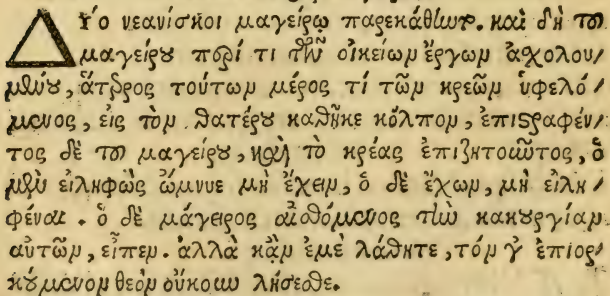 Δύο νεανίσκοι μαγείρῳ παρεκάθίωτο. καὶ δὴ τοῦ
μαγείρου περί τι τῶν οἰκείων ἔργων ἀσχολου/
μένου, ἅτερος τούτων μέρος τί τῶν κρεῶν ὑφελό/
μενος, εἰς τὸν θατέρου καθῆκε κόλπον, ἐπιστραφέν/
τος δὲ τοῦ μαγείρου, καὶ τὸ κρέας ἐπιζητοῦντος, ὁ
μὲν εἰληφὼς ὤμνυε μὴ ἔχειν, ὁ δὲ ἔχων, μὴ εἰλη/
φέναι. ὁ δὲ μάγειρος αἰσθόμενος τὴν κακουργίαν
αὐτῶν, εἶπεν. ἀλλὰ κἂν ἐμὲ λάθητε, τόν γ' ἐπιορ/
κούμενον θεὸν οὔκουν λήσεσθε.